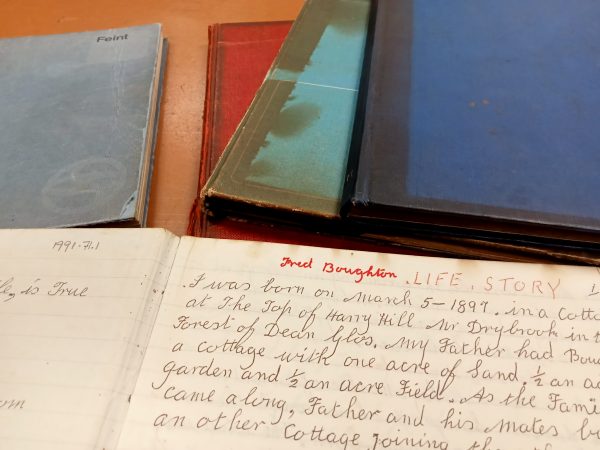 Feint
1991.71.1
is True
Fred Boughton. LIFE. STORY
I was born on March 5-1897. in a Cotta
at The Top of Harry Hill Nr Drybrook in t
Forest of Dean Glos. My Father had Bou
a cottage with one acre of Land. ½ an ac
garden and ½ an acre Field. As the Fami
came along, Father and his mates bu
an other Cottage Joining the